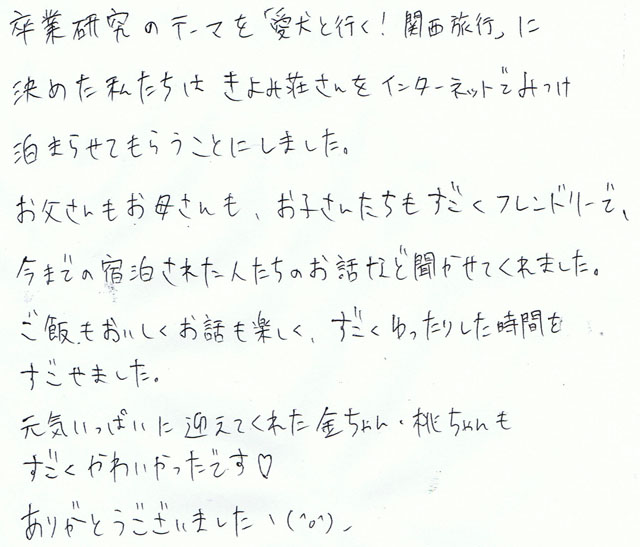 卒業研究のテーマを「愛犬と行く！関西旅行」に
決めた私たちは きよみ荘さんをインターネットでみつけ
泊まらせてもらうことにしました。
お父さんもお母さんも、お子さんたちもすごくフレンドリーで、
今までの宿泊された人たちのお話など聞かせてくれました。
ご飯もおいしくお話も楽しく、すごくゆったりした時間を
すごせました。
元気いっぱいに迎えてくれた金ちゃん・桃ちゃんも
すごくかわいかったです♡
ありがとうございましたヽ(^o^)ノ